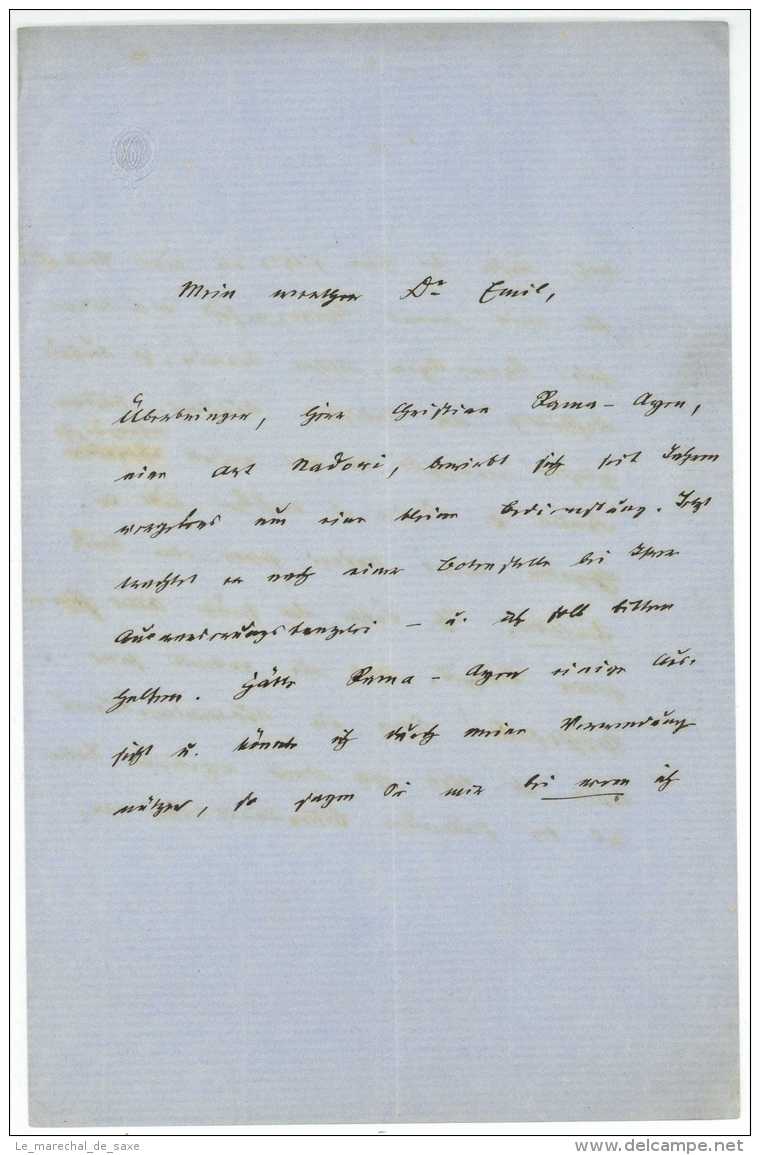 Mein werther Dr. Emil,
Überbringer, Herr Christian Rama-Ayen,
eine Art Nadori, bewirbt sich seit Jahren
vergebens um eine kleine Bedienstung. Jetzt
trachtet er nach einer Botenstelle bei Ihrer
Auswanderungskanzlei – u. ich soll bitten
helfen. Hätte Rama-Ayen einige Aus-
sicht u. könnte ich durch meine Verwendung
nützen, so sagen Sie mir bei wem ich
Le_marechal_de_saxe
www.delcampe.net